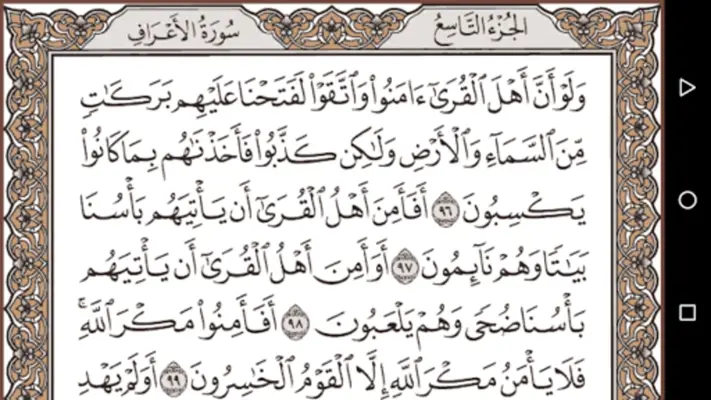 الجزء التاسع
سورة الأعراف
وَلَوْ أَنَّ أَهْلَ ٱلْقُرَىٰٓ ءَامَنُوا۟ وَٱتَّقَوْا۟ لَفَتَحْنَا عَلَيْهِم بَرَكَٰتٍ
مِّنَ ٱلسَّمَآءِ وَٱلْأَرْضِ وَلَٰكِن كَذَّبُوا۟ فَأَخَذْنَٰهُم بِمَا كَانُوا۟
يَكْسِبُونَ ٩٦ أَفَأَمِنَ أَهْلُ ٱلْقُرَىٰٓ أَن يَأْتِيَهُم بَأْسُنَا
بَيَٰتًا وَهُمْ نَآئِمُونَ ٩٧ أَوَأَمِنَ أَهْلُ ٱلْقُرَىٰٓ أَن يَأْتِيَهُم
بَأْسُنَا ضُحًى وَهُمْ يَلْعَبُونَ ٩٨ أَفَأَمِنُوا۟ مَكْرَ ٱللَّهِ ۚ
فَلَا يَأْمَنُ مَكْرَ ٱللَّهِ إِلَّا ٱلْقَوْمُ ٱلْخَٰسِرُونَ ٩٩ أَوَلَمْ يَهْدِ